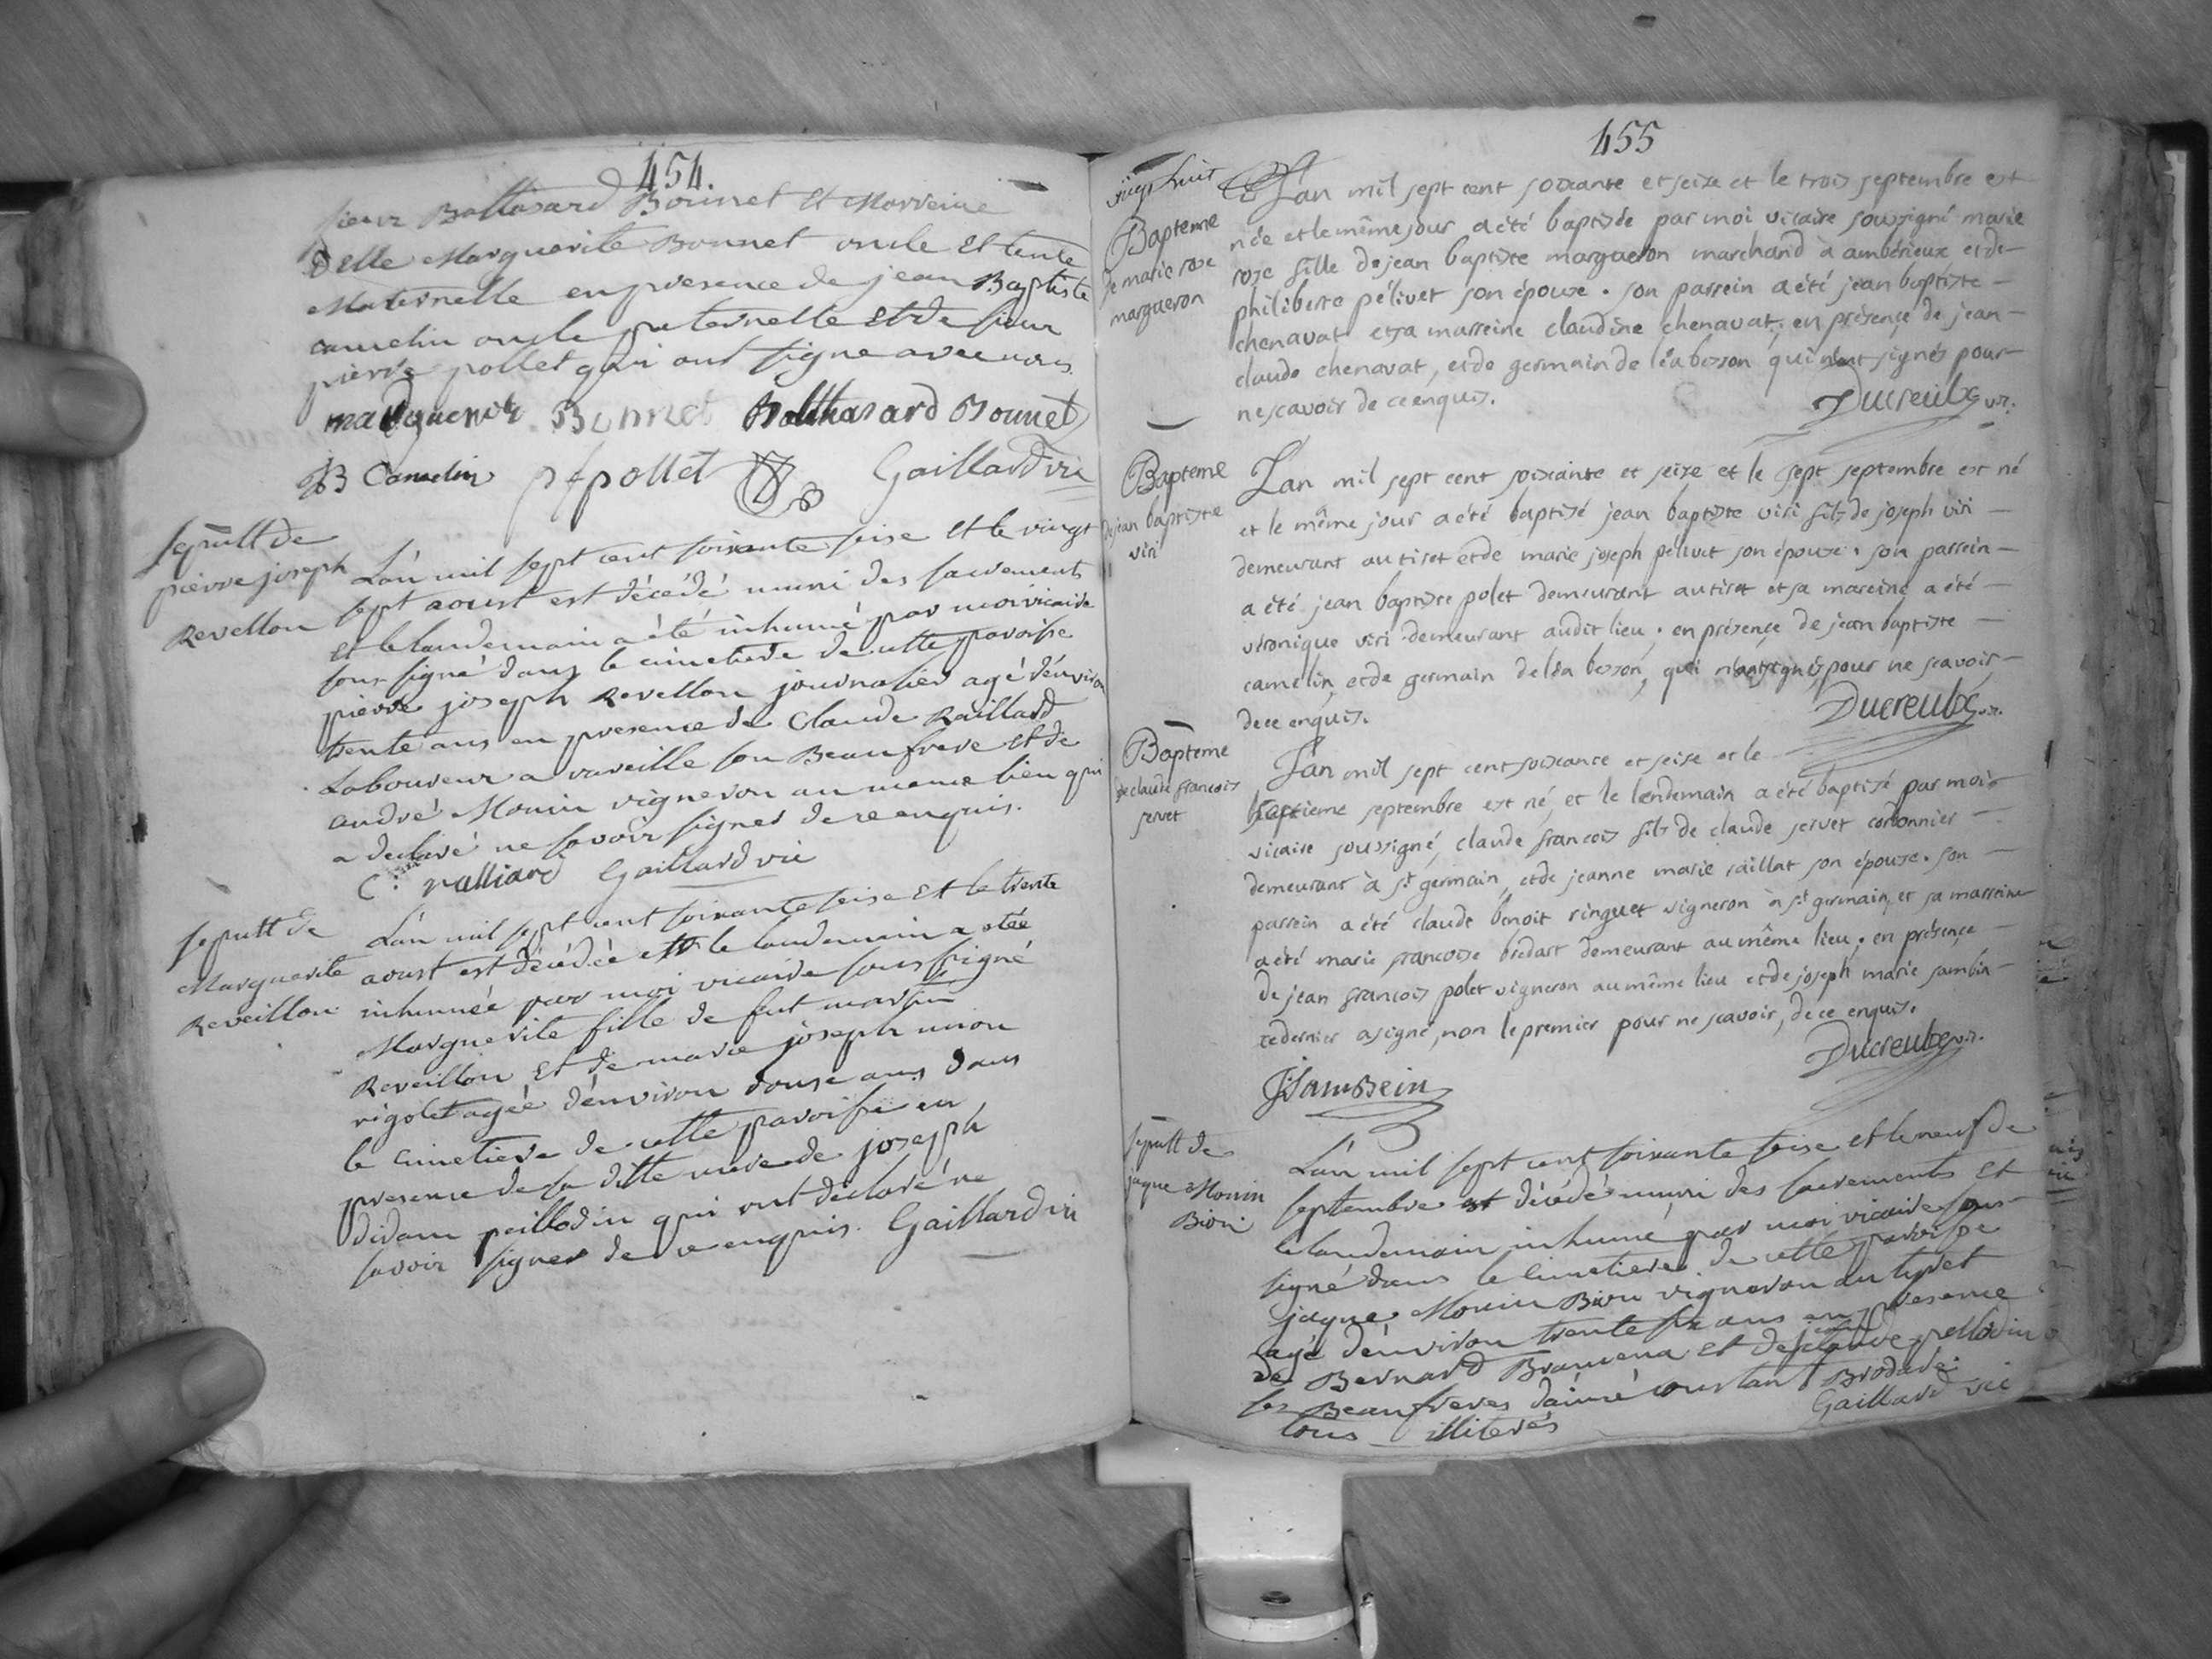 454.
sieur Baltasard Bonnet et Marreine
Delle Marguerite Bonnet oncle et tente
Maternelle en presence de jean Baptiste
camelin oncle paternelle et de sieur
pierre pollet qui ont signe avec nous
marguerite Bonnet Balthasard Bonnet
JB Camelin pfpollet Gaillard vic
sepult de
pierre joseph
Revellon
L'an mil sept cent soixante seise et le vingt
sept aoust est décédé muni des sacrements
et le landemain a été inhumé par moi vicaire
sous signé dans le cimetiere de cette paroisse
pierre joseph Revellon journalier agé d'environ
trente ans en presence de Claude Raillard
Laboureur a vareille son Beaufrere et de
andré Monin vigneron au meme lieu qui
a declaré ne savoir signer de ce enquis.
C. ralliard Gaillard vic
sepult de
Marguerite
Reveillon
L'an mil sept cent soixante seise et le trente
aoust est décédée et le landemain a etée
inhumée par moi vicaire sous signé
Marguerite fille de feut martin
Reveillon et de marie joseph
rigolet agée d'environ douse ans dans
le cimetiere de cette paroisse en
presence de sa ditte mere de joseph
didam peillodin qui ont declaré ne
savoir signer de ce enquis. Gaillard vic
455
vingt huit
Bapteme
de marie rose
margueron
L'an mil sept cent soixante et seize et le trois septembre est
née et le même jour a été baptisée par moi vicaire soussigné marie
rose fille de jean baptiste margueron marchand à ambérieux et de
philiberte pélivet son épouse. son parrein a été jean baptiste
chenavat et sa marreine claudine chenavat; en présence de jean
claude chenavat, et de germain de léa besson qui n'ont signés pour
ne scavoir de ce enquis. Ducreulx vic.
Bapteme
de jean baptiste
viri
L'an mil sept cent soixante et seize et le sept septembre est né
et le même jour a été baptisé jean baptiste viri fils de joseph viri
demeurant au tiret et de marie joseph pélivet son épouse. son parrein
a été jean baptiste polet demeurant au tiret et sa mareine a été
véronique viri demeurant audit lieu; en présence de jean baptiste
camelin, et de germain de léa besson, qui n'ont signés, pour ne scavoir
de ce enquis. Ducreulx vic.
Bapteme
de claude francois
servet
L'an mil sept cent soixante et seise et le
septieme septembre est né, et le lendemain a été baptisé par moi
vicaire soussigné, claude francois fils de claude servet cordonnier
demeurant à st germain, et de jeanne marie raillat son épouse. son
parrein a été claude benoit ringuet vigneron à st germain, et sa marreine
a été marie francoise brédart demeurant au même lieu; en présence
de jean francois polet vigneron au même lieu et de joseph marie sambin
ce dernier a signé, non le premier pour ne scavoir, de ce enquis.
Ducreulx vic.
JSambein
sepult de
jaque Monin
Bion
L'an mil sept cent soixante seise et le neuf de
septembre est décédé muni des sacrements et
le landemain inhumé par moi vicaire sous
signé dans le cimetiere de cette paroisse
jaque Monin Bion vigneron au tyret
agé d'environ trente six ans en presence
de Bernard Bramena et de claude pellodin
ses Beaufreres d'aimé constant Brodard
tous illiterés Gaillard vic